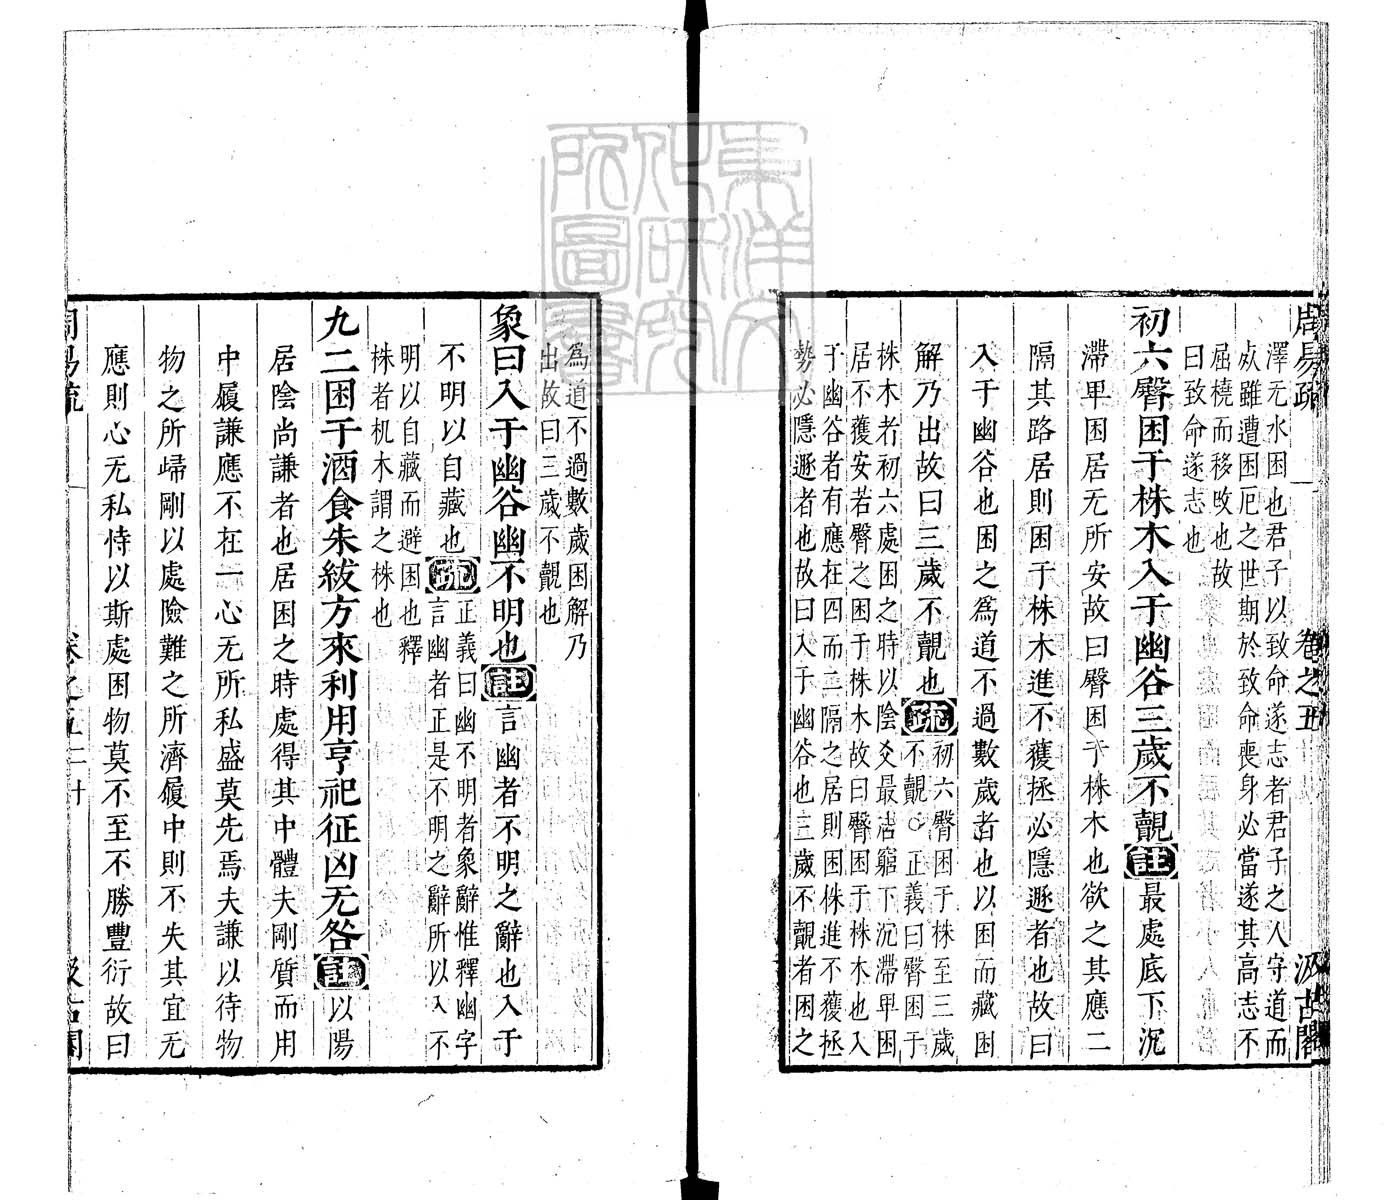 周易疏 卷之五 汲古閣
澤无水困也君子以致命遂志者君子之人守道而
㱾雖遭困厄之世期於致命喪身必當遂其高志不
屈橈而移攺也故
曰致命遂志也
初六臀困于株木入于幽谷三歲不覿註最處底下沉
滯卑困居无所安故曰臀困于株木也欲之其應二
隔其路居則困于株木進不獲拯必隱遯者也故曰
入于幽谷也困之爲道不過數歲者也以困而藏困
解乃出故曰三歲不覿也疏初六臀困于株至三歲
不覿○正義曰臀困于
株木者初六處困之時以陰爻最居窮下沉滯卑困
居不獲安若臀之困于株木故曰臀困于株木也入
于幽谷者有應在四而二隔之居則困株進不獲拯
勢必隱遯者也故曰入于幽谷也三歲不覿者困之
爲道不過數歲困解乃
出故曰三歲不覿也
象曰入于幽谷幽不明也註言幽者不明之辭也入于
不明以自藏也疏正義曰幽不明者象辭惟釋幽字
言幽者正是不明之辭所以入不
明以自藏而避困也釋
株者杌木謂之株也
九二困于酒食朱紱方來利用亨祀征凶无咎註以陽
居陰尚謙者也居困之時處得其中體夫剛質而用
中履謙應不在一心无所私盛莫先焉夫謙以待物
物之所歸剛以處險難之所濟履中則不失其宜无
應則心无私恃以斯處困物莫不至不勝豐衍故曰
周易疏 卷之五 二十 汲古閣
東洋文化研究所圖書